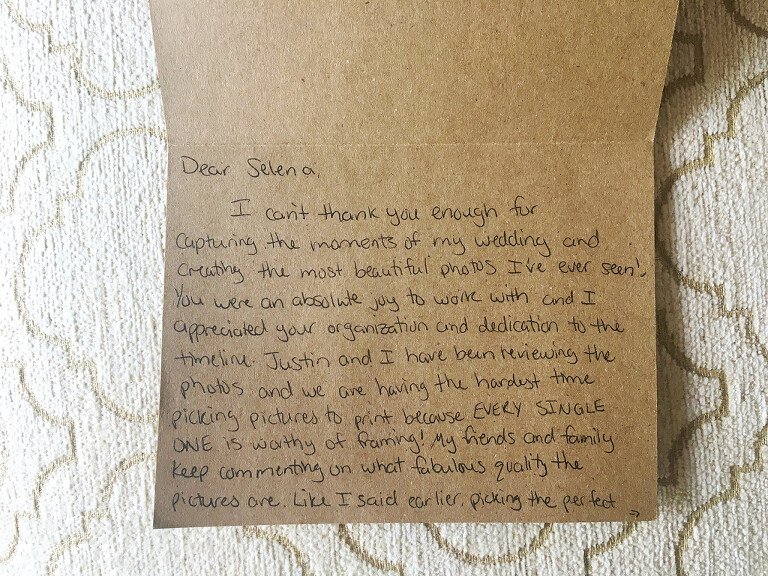 Dear Selena,
I can't thank you enough for
capturing the moments of my wedding and
creating the most beautiful photos I've ever seen!
You were an absolute joy to work with and I
appreciated your organization and dedication to the
timeline. Justin and I have been reviewing the
photos and we are having the hardest time
picking pictures to print because EVERY SINGLE
ONE is worthy of framing! My friends and family
keep commenting on what fabulous quality the
pictures are. Like I said earlier, picking the perfect
→